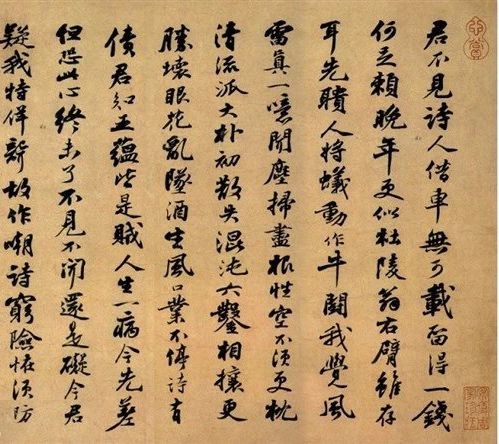 君不見詩人借車無可載留得一錢
何足賴晚年更似杜陵翁右臂雖存
耳先聵人將蟻動作牛鬪我覺風
雷真一噫聞塵掃盡根性空不須更枕
清流派大朴初散失混沌六鑿相攘更
勝壞眼花亂墜酒生風口業不停詩有
債君知五蘊皆是賊人生一病今先差
但恐此心終未了不見不聞還是礙今君
疑我特佯聾故作嘲詩窮險怪須防